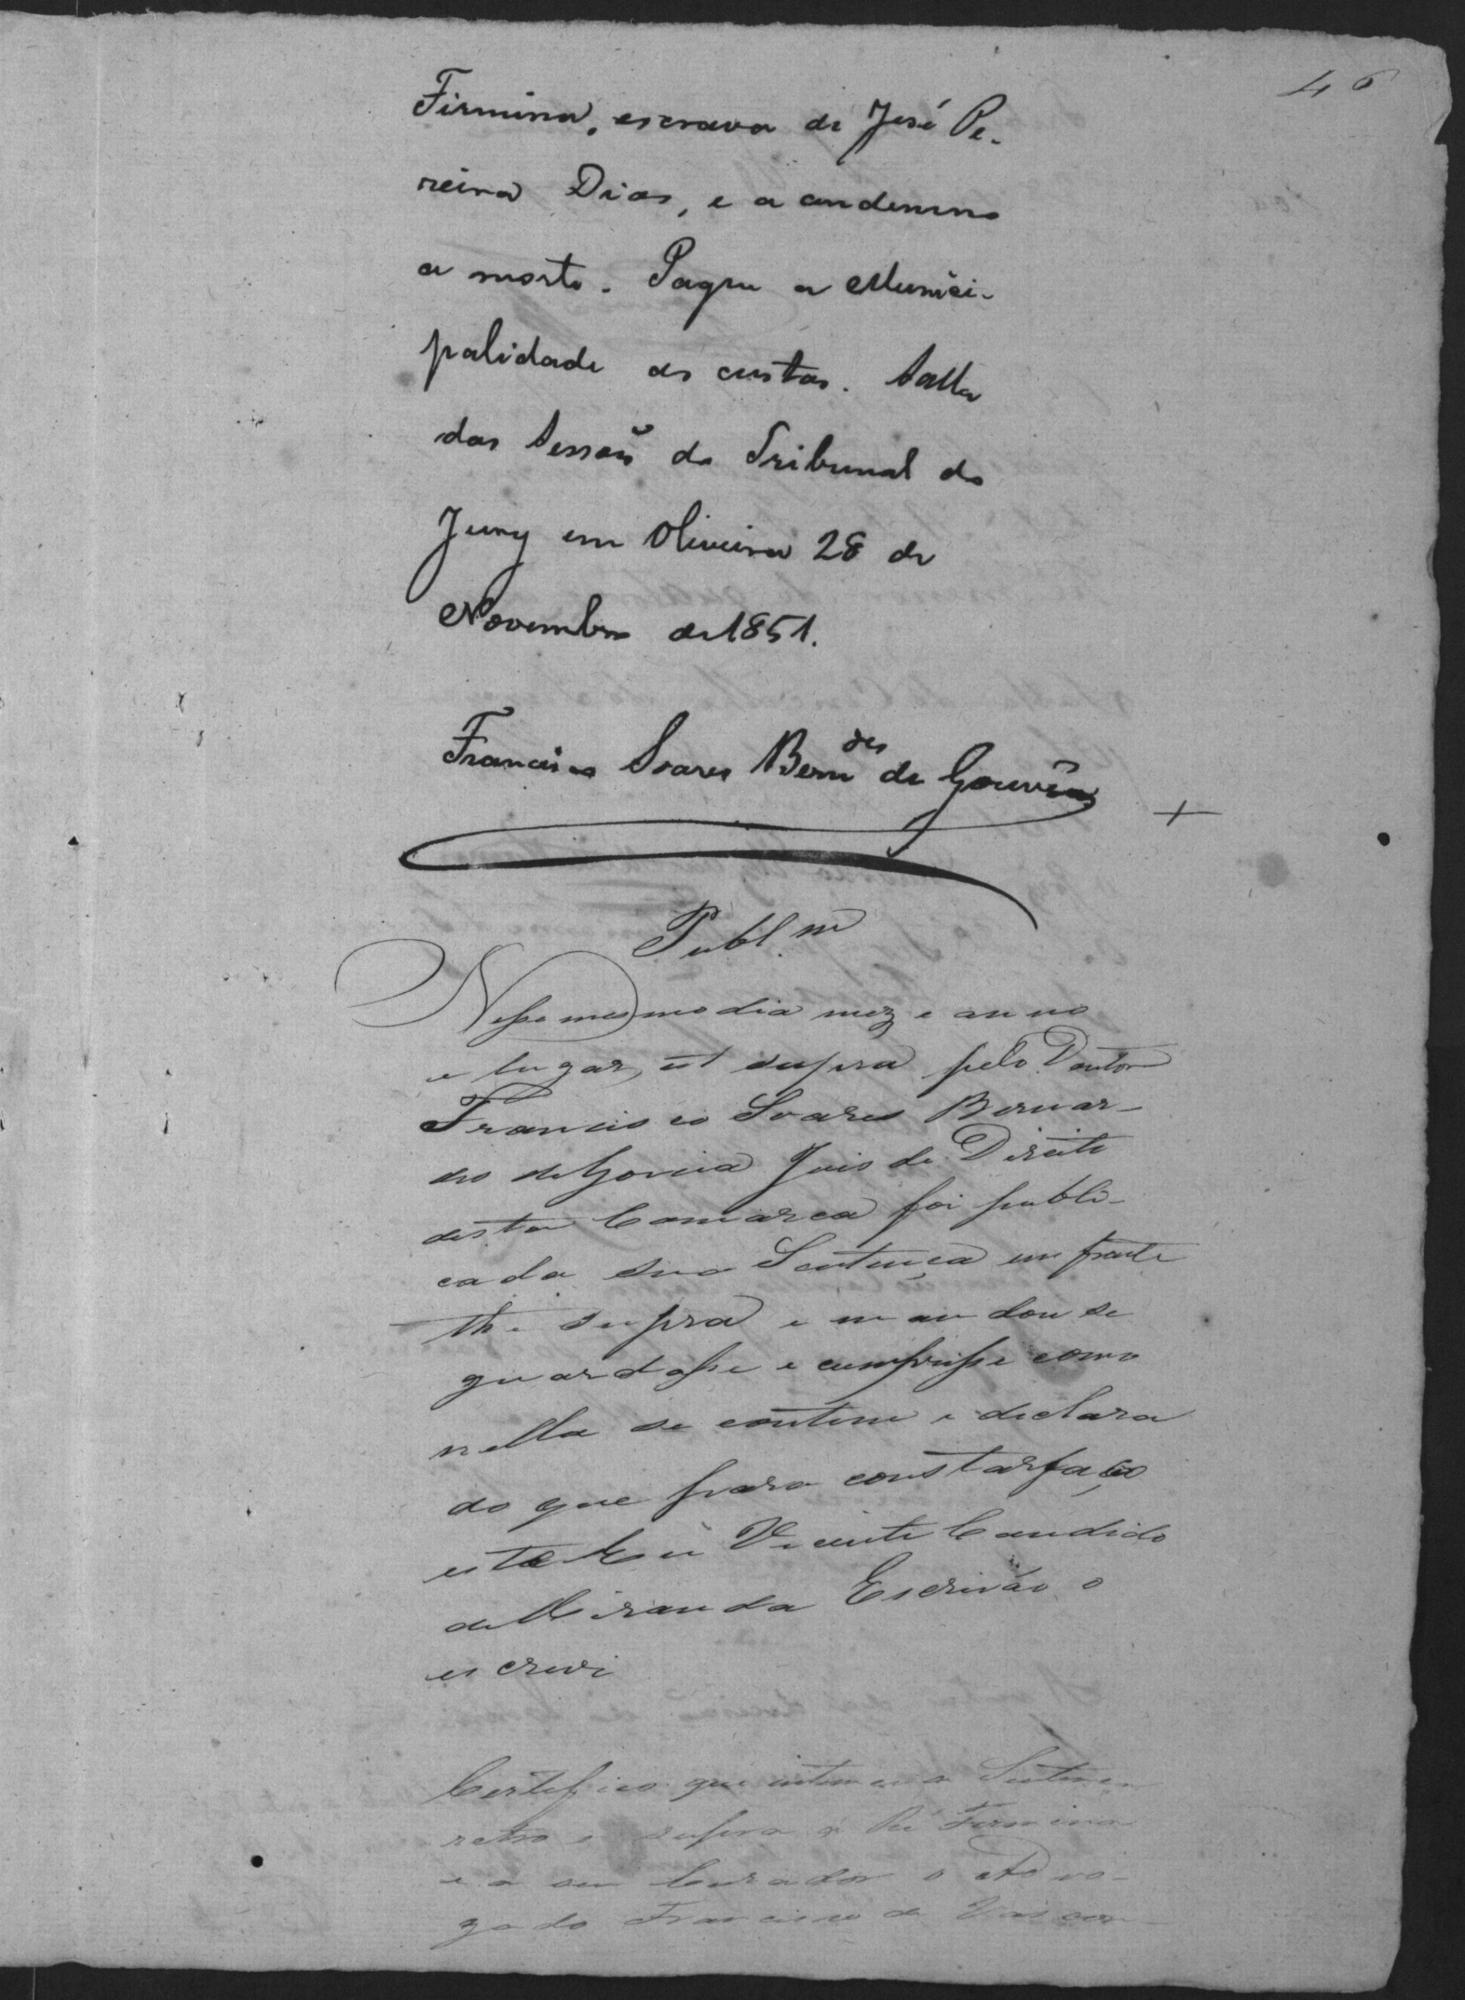 46
Firmina, escrava de José Pe-
reira Dias, e a condemno
a morte. Pague a Munici-
palidade as custas. Salla
das Sessoẽs do Tribunal do
Jury em Oliveira 28 de
Novembro de 1851.
Francisco Soares Bern.des de Gouvêa
Publ.m
Nesse mesmo dia mez e anno
e lugar, ut supra pelo Doutor
Francisco Soares Bernar-
des de Goveia Juis de Direito
desta Comarca foi publi-
cada sua Sentença em frente
the supra e mandou se
guardasse e cumprisse como
nella se contem e declara
do que para constar faço
este Eu Vicente Candido
de Miranda Escrivão o
escrevi
Certifico que intimei a Senten
retro e supra a Ré Firmina
e a seu Curador o Advo-
gado Francisco de Vascon